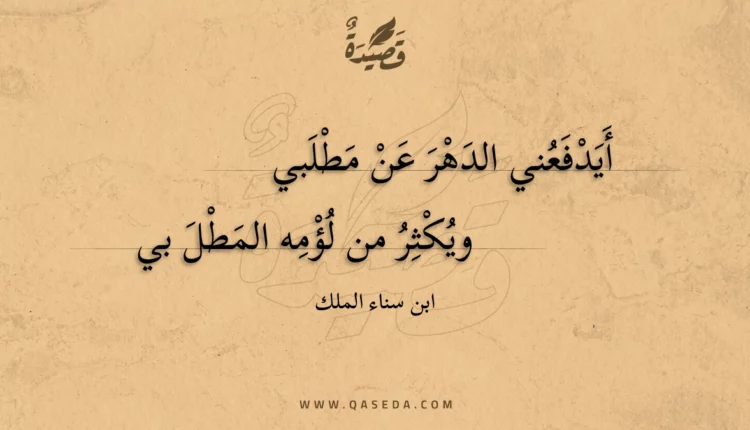 قَصِيْدَةٌ
أَيَدْفَعُني الدَهْرَ عَنْ مَطْلَبي
ويُكْثِرُ من لُؤْمِه المَطْلَ بي
ابن سناء الملك
WWW.QASEDA.COM